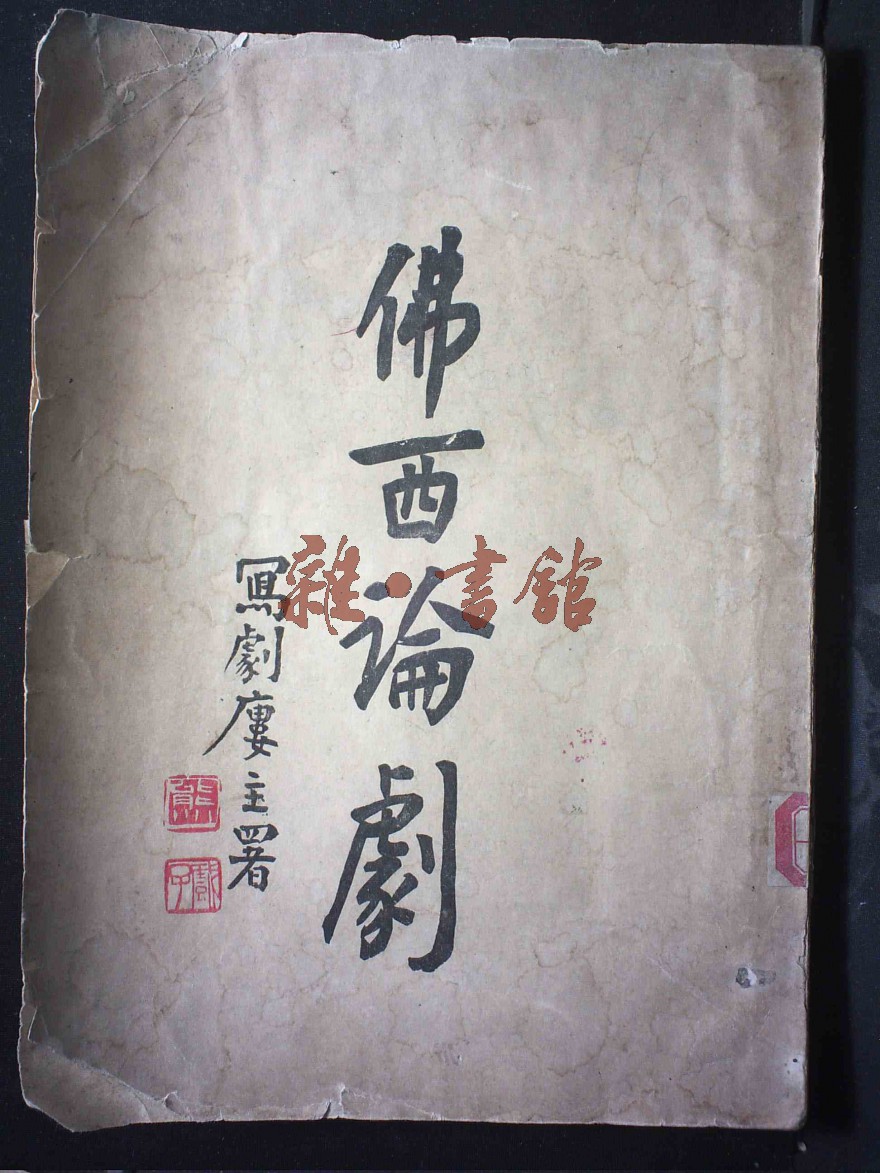 佛西論劇
寫劇廔主署
熊
雜·書館